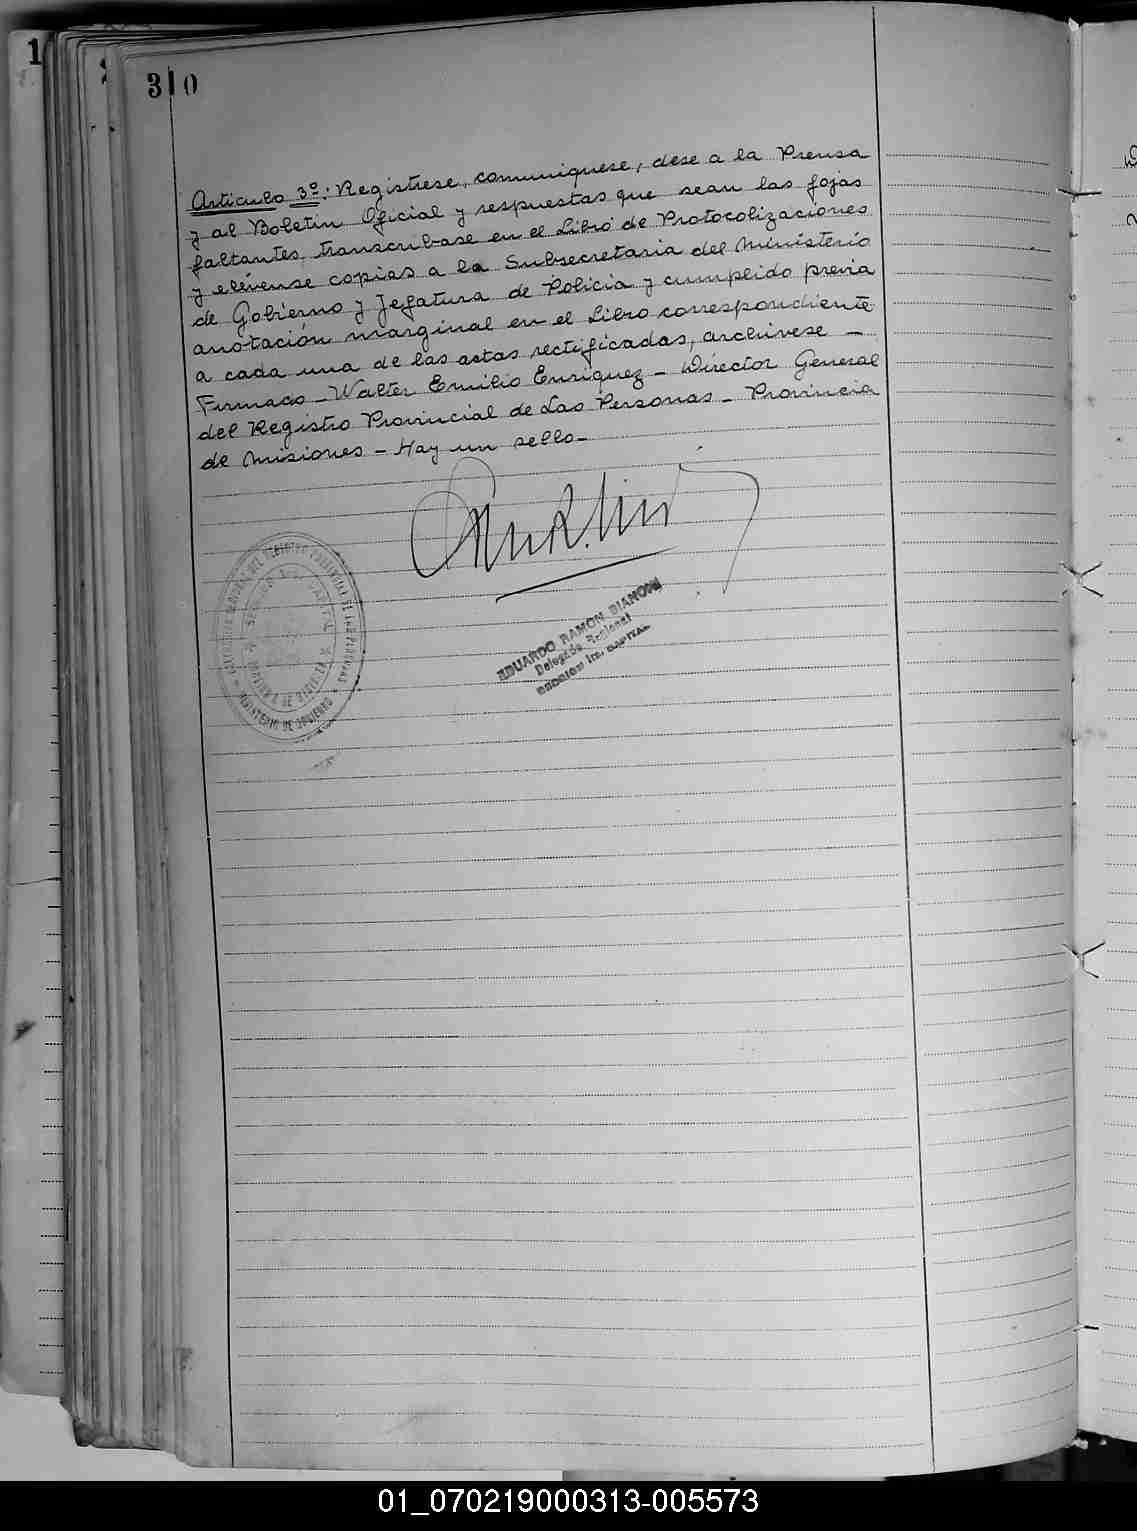 310
Artículo 3º: Regístrese, comuníquese, dese a la Prensa
y al Boletín Oficial y respuestas que sean las fojas
faltantes, transcríbase en el Libro de Protocolizaciones
y elévense copias a la Subsecretaria del Ministerio
de Gobierno y Jefatura de Policía y cumplido previa
anotación marginal en el Libro correspondiente
a cada una de las actas rectificadas, archívese –
Firmado – Walter Emilio Enriquez – Director General
del Registro Provincial de Las Personas – Provincia
de Misiones – Hay un sello –
EDUARDO RAMON BIANCHI
Delegado Regional
CAPITAL
DEL REGISTRO PROVINCIAL DE LAS PERSONAS
MINISTERIO DE GOBIERNO
01_070219000313-005573